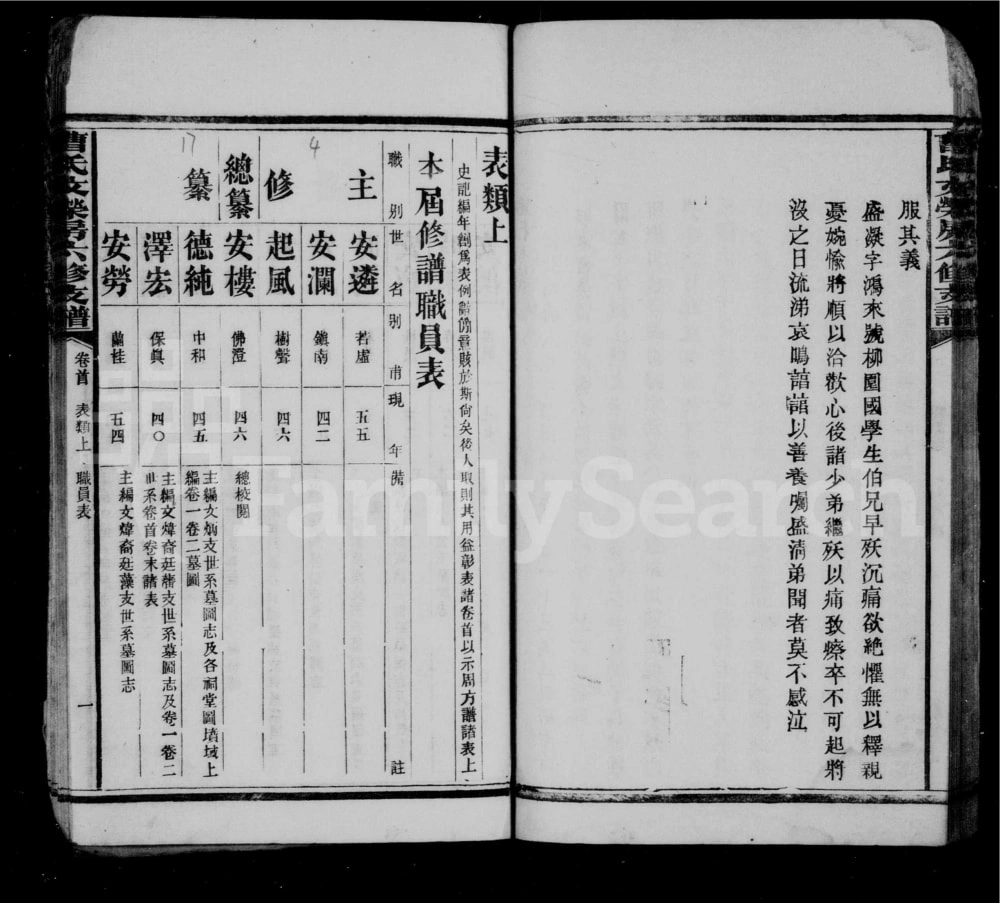 服其義
盛凝字鴻來號柳園國學生伯兄早殀沉痛欲絶懼無以釋親
憂婉愉將順以洽歡心後諸少弟繼殀以痛致瘵卒不可起將
沒之日流涕哀鳴諳諳以善養囑盛淸弟聞者莫不感泣
表類上
史記編年創爲表例諸傍意賅於斯尙矣後人取則其用益彰表諸卷首以示周方譜諸表上
本屆修譜職員表
職別 世名 別甫 現年 備註
主 安遴 若虛 五五
安瀾 鎭南 四二
修 起風 樹聲 四六
總纂 安樓 佛澄 四六 總校閱
纂 德純 中和 四五 主編文炳支世系墓圖志及各祠堂圖墳域上
編卷一卷二墓圖
澤宏 保眞 四〇 主編文煒裔廷蘅支世系墓圖志及卷一卷二
世系卷首卷末諸表
安勞 蘭桂 五四 主編文煒裔廷藻支世系墓圖志
曹氏文榮房六修支譜
卷首 表類上 職員表
一
4
17
FamilySearch